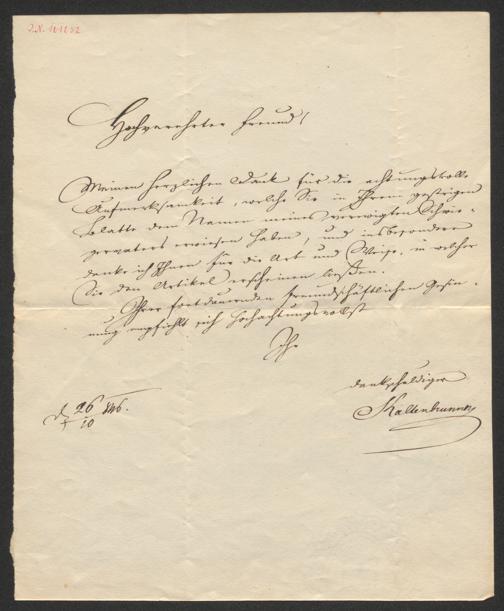 I.N. 101252
Hochverehrter Freund!
Meinen herzlichen Dank für die achtungsvolle
Aufmerksamkeit, welche Sie in Ihrem gestrigen
Blatte dem Namen meines verewigten Schwie-
gervaters erwiesen haben, und insbesondere
danke ich Ihnen für die Art und Weise, in welcher
Sie den Artikel erscheinen ließen.
Ihrer fortdauernden freundschaftlichen Gesin-
nung empfiehlt sich hochachtungsvollst
Ihr
dankschuldiger
Kaltenbrunner
26/10 846.